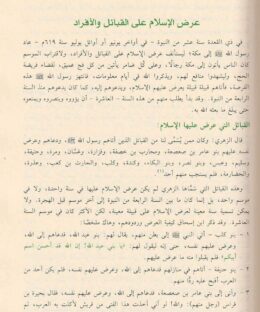 عرض الإسلام على القبائل والأفراد
في ذي القعدة سنة عشر من النبوة - في أواخر يونيو أو أوائل يوليو سنة ٦١٩م - عاد
رسول الله ﷺ إلى مكة؛ ليستأنف عرض الإسلام على القبائل والأفراد، ولاقتراب الموسم
كان الناس يأتون إلى مكة رجالا، وعلى كل ضامر يأتين من كل فج عميق، لقضاء فريضة
الحج، وليشهدوا منافع لهم، ويذكروا الله في أيام معلومات، فانتهز رسول الله ﷺ هذه
الفرصة، فأتاهم قبيلة قبيلة يعرض عليهم الإسلام، ويدعوهم إليه، كما كان يدعوهم منذ السنة
الرابعة من النبوة، وقد بدأ يطلب منهم من هذه السنة - العاشرة - أن يؤووه وينصروه ويمنعوه
حتى يبلغ ما بعثه الله به.
القبائل التي عرض عليها الإسلام:
قال الزهري: وكان ممن يسمى لنا من القبائل الذين أتاهم رسول الله ﷺ، ودعاهم وعرض
نفسه عليهم بنو عامر بن صعصعة، ومحارب بن خصفة، وفزارة، وغسان، ومرة، وحنيفة،
وسليم، وعبس، وبنو نصر، وبنو البكاء، وكندة، وكلب، والحارث بن كعب، وعذرة،
والحضارمة، فلم يستجب منهم أحد
وهذه القبائل التي سماها الزهري لم يكن عرض الإسلام عليها في سنة واحدة، ولا في
موسم واحد، بل إنما كان ما بين السنة الرابعة من النبوة إلى آخر موسم قبل الهجرة. ولا
يمكن تسمية سنة معينة لعرض الإسلام على قبيلة معينة، لكن الأكثر كان في موسم السنة
العاشرة. وقد ذكر ابن إسحاق كيفية العرض وردودهم، وهاك ملخصًا:
١ - بنو كلب - أتى النبي ﷺ إلى بطن منهم، يقال لهم: بنو عبد الله، فدعاهم إلى الله،
وعرض عليهم نفسه، حتى إنه ليقول لهم: يا بني عبد الله، إن الله قد أحسن اسم
أبيكم، فلم يقبلوا منه ما عرض عليهم.
٢ - بنو حنيفة - أتاهم في منازلهم فدعاهم إلى الله، وعرض عليهم نفسه، فلم يكن أحد من
العرب أقبح عليه ردًا منهم.
٣ - وأتى إلى بني عامر بن صعصعة، فدعاهم إلى الله، وعرض عليهم نفسه، فقال بحيرة بن
فراس (رجل منهم): والله! لو أني أخذت هذا الفتى من قريش لأكلت به العرب، ثم